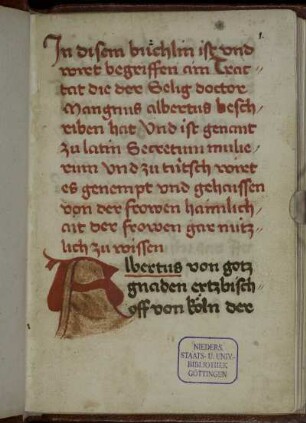 1.
In disem bůchlin ist vnd
wirt begriffen ain Trac-
tat die der Selig doctor
Mangnus albertus besch-
riben hat Vnd ist genant
zu latin Secretum mulie-
rum Vnd zu tútsch wirt
es genempt vnd gehaissen
von der frowen haimlich-
ait der frowen gar nútz-
lich zu wissen
Albertus von gotz
gnaden ertzbisch-
off von köln der
NIEDERS.
STAATS- U. UNIV.-
BIBLIOTHEK
GÖTTINGEN